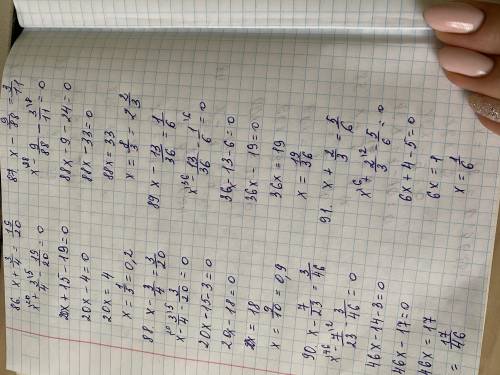 86. x + 3/4 = 19/20
x^20 + 3/4^5 - 19/20 = 0
20x + 15 - 19 = 0
20x - 4 = 0
20x = 4
x = 1/5 = 0,2
88. x - 3/4 = 3/20
x^20 - 3/4^5 - 3/20 = 0
20x - 15 - 3 = 0
20x - 18 = 0
20x = 18
x = 9/10 = 0,9
90. x - 7/23 = 3/46
x^46 - 7/23^2 - 3/46 = 0
46x - 14 - 3 = 0
46x - 17 = 0
46x = 17
= 17/46
87. x - 9/88 = 3/11
x^88 - 9/88 - 3/11^8 = 0
88x - 9 - 24 = 0
88x - 33 = 0
88x = 33
x = 8/3 = 2 2/3
89. x - 13/36 = 1/6
x^36 - 13/36 - 1/6^6 = 0
36x - 13 - 6 = 0
36x - 19 = 0
36x = 19
x = 19/36
91. x + 2/3 = 5/6
x^6 + 2/3^2 - 5/6 = 0
6x + 4 - 5 = 0
6x = 1
x = 1/6